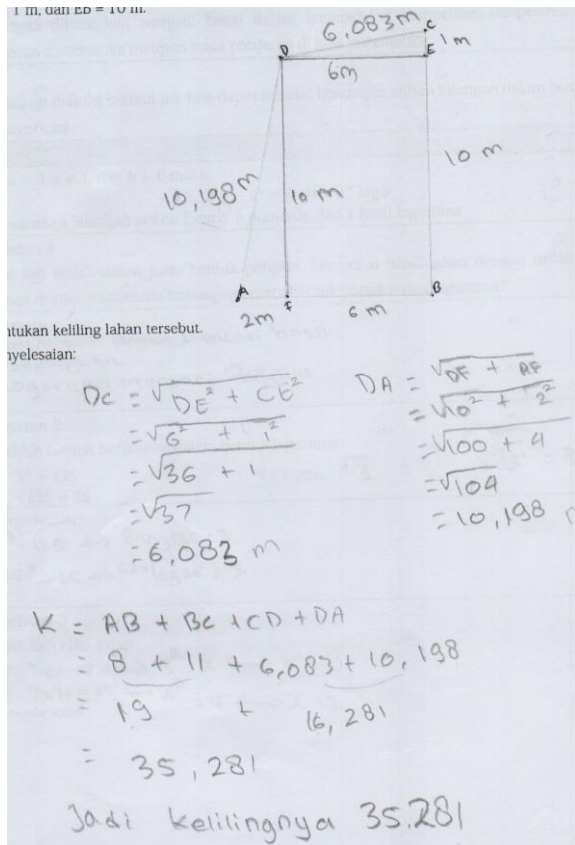 1 m, dan EB = 10 m.
6,083 m C
D 1 m
6m E
10 m
10,198 m 10 m
A F B
2m 6 m
ntukan keliling lahan tersebut.
nyelesaian:
DC = √DE² + CE²
= √6² + 1²
= √36 + 1
= √37
= 6.083 m
DA = √DF + AF
= √10² + 2²
= √100 + 4
= √104
= 10,198
K = AB + BC + CD + DA
= 8 + 11 + 6,083 + 10,198
= 19 + 16,281
= 35,281
Jadi kelilingnya 35.281